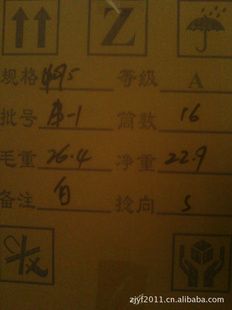 Z
规格 等级 A
批号 -1 筒数 16
毛重 26.4 净重 22.9
备注 白 捻向 S
zjyf2011.cn.alibaba.com